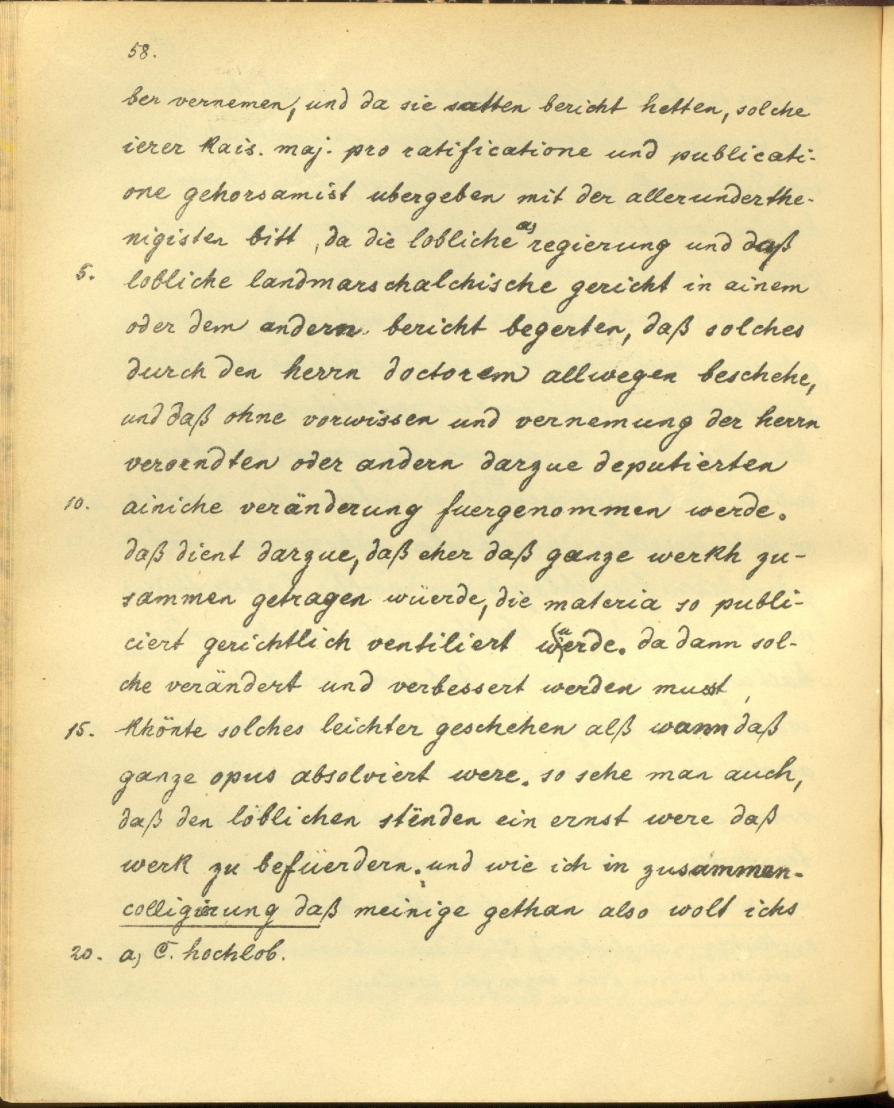 58.
ber vernemen, und da sie satten bericht hetten, solche
ierer Kais. maj. pro ratificatione und publicati-
one gehorsamist ubergeben mit der allerunderthe-
nigisten bitt, da die lobliche a) regierung und daß
5. lobliche landmarschalchische gericht in ainem
oder dem andern bericht begerten, daß solches
durch den herrn doctorem allwegen beschehe,
und daß ohne vorwissen und vernemung der herrn
verorndten oder andern darzue deputierten
10. ainiche veränderung fuergenommen werde.
daß dient darzue, daß eher daß ganze werkh zu-
sammen getragen würde, die materia so publi-
ciert gerichtlich ventiliert werde. da dann sol-
che verändert und verbessert werden must,
15. khönte solches leichter geschehen alß wann daß
ganze opus absolviert were. so sehe man auch,
daß den löblichen stenden ein ernst were daß
werk zu befüerdern. und wie ich in zusammen-
colligierung daß meinige gethan also wolt ichs
20. a) C. hochlob.